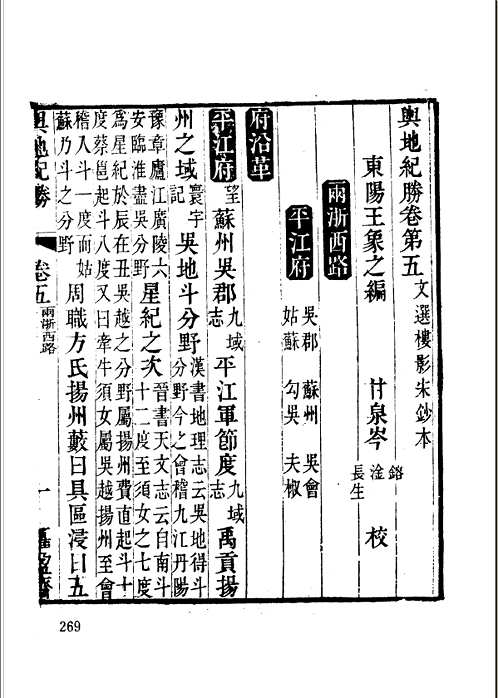 輿地紀勝卷第五 文選樓影宋鈔本
東陽王象之編 甘泉岑 鎔 淦 長生 校
兩浙西路
平江府 吳郡 蘇州 吳會 姑蘇 勾吳 夫椒
府沿革
平江府 望 蘇州吳郡 九域志 平江軍節度 九域志 禹貢揚
州之域 寰宇記 吳地斗分野 漢書地理志云吳地得斗分野今之會稽九江丹陽
豫章廬江廣陵六安臨淮盡吳分野 星紀之次 晉書天文志云自南斗十二度至須女之七度
爲星紀於辰在丑吳越之分野屬揚州費直起斗十度蔡邕起斗八度又曰牽牛須女吳越揚州至會
稽入斗一度而姑蘇乃斗之分野 周職方氏揚州藪曰具區浸曰五
輿地紀勝 卷五 兩浙西路 一 懼盈齋
269